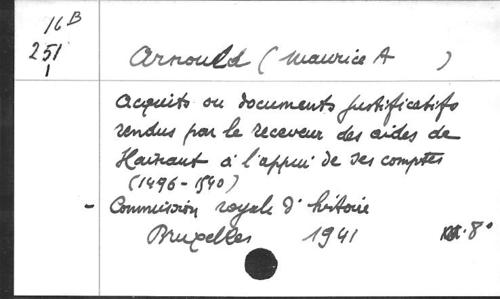 16 B
251
1
Arnould (Maurice A )
Acquits ou documents justificatifs
rendus par le receveur des aides de
Hainaut à l'appui de ses comptes
(1496-1540)
- Commission royale d'histoire
Bruxelles 1941 8°